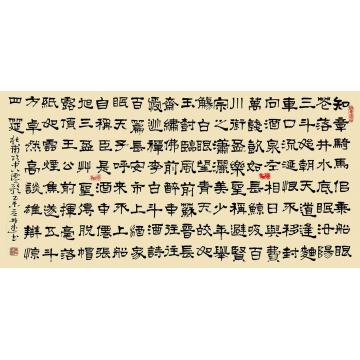 知章騎馬似乘船眼
花落井水底眠汝陽
三斗始朝天道逢麴
車口流涎恨不移封
向酒泉左相日興費
萬錢飲如長鯨吸百
川銜盃樂聖稱避賢
宗之瀟灑美少年舉
觴白眼望青天皎如
玉樹臨風前蘇晉長
齋繡佛前醉中往往
愛逃禪李白斗酒詩
百篇長安市上酒家
眠天子呼來不上船
自稱臣是酒中仙張
旭三盃草聖傳脫帽
露頂王公前揮毫落
紙如雲煙焦遂五斗
方卓然高談雄辯驚
四筵
杜甫